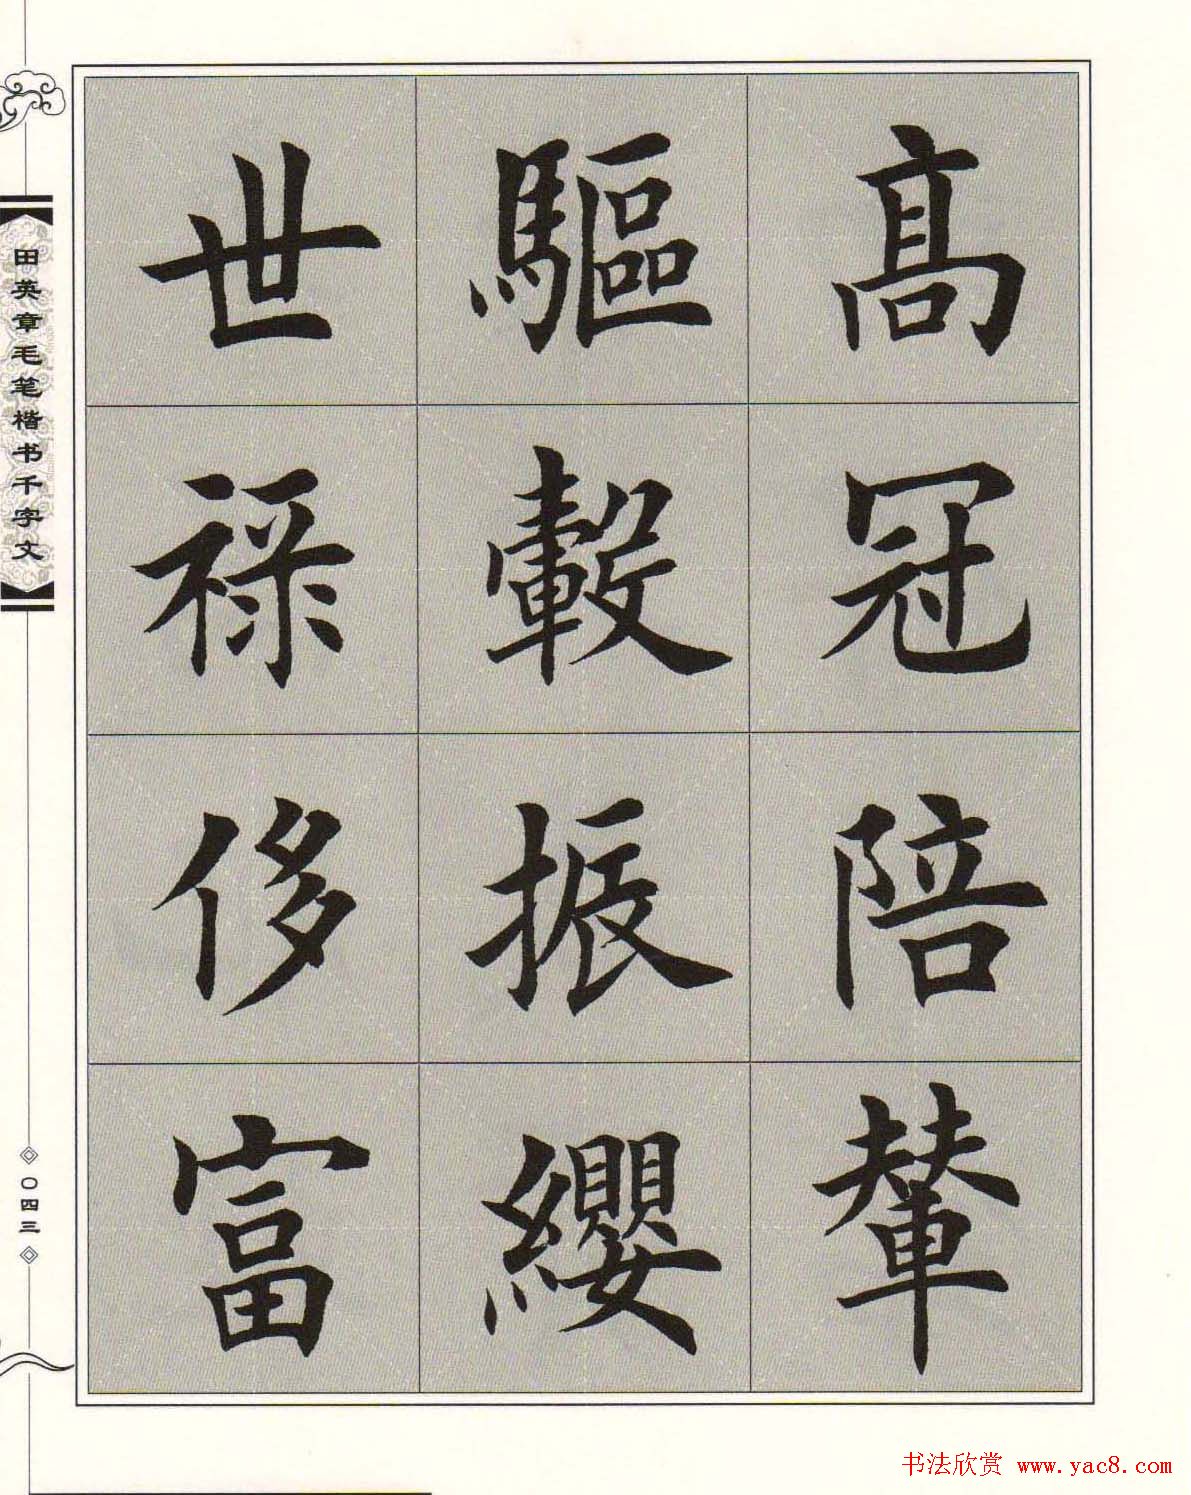 高冠陪輦
驅轂振纓
世祿侈富
田英章毛笔楷书千字文
〇四三
书法欣赏 www.yac8.com